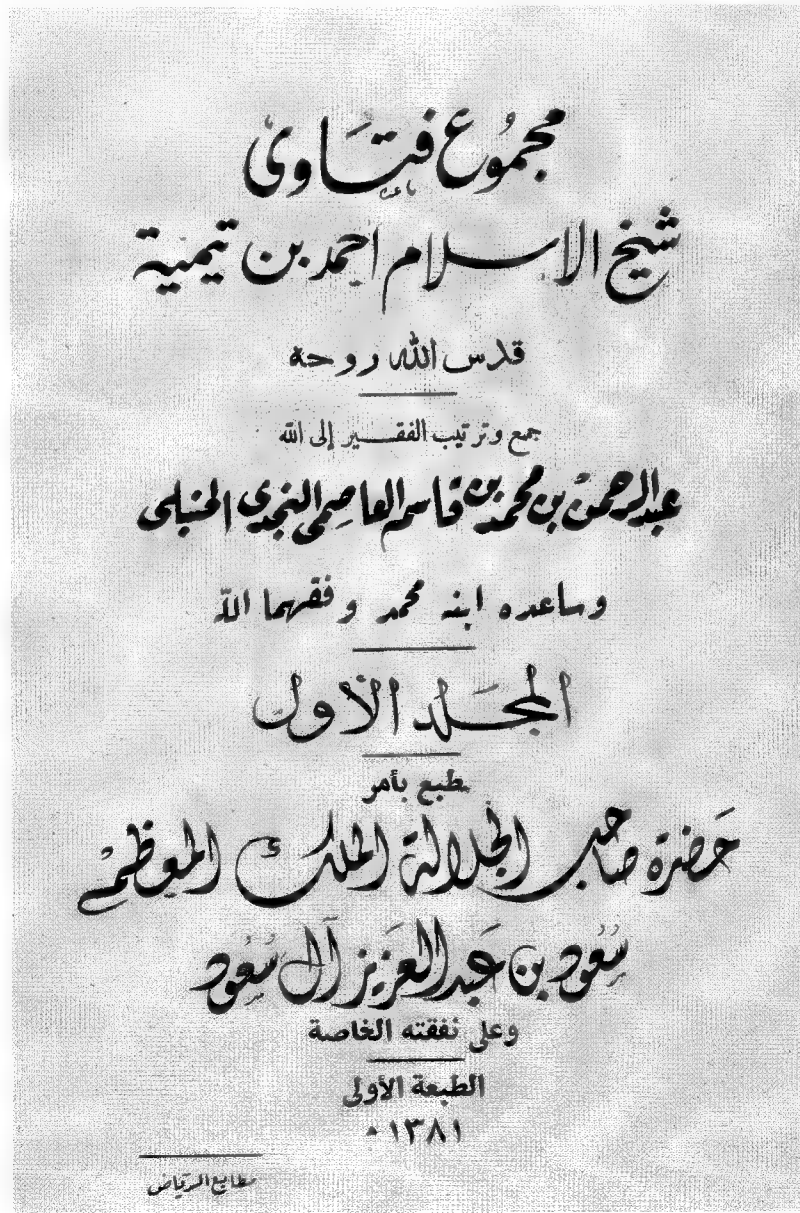 مجموع فتاوى
شيخ الاسلام احمد بن تيمية
قدس الله روحه
جمع وترتيب الفقير إلى الله
عبد الرحمن بن محمد بن قاسم العاصمي النجدي الحنبلي
وساعده ابنه محمد وفقهما الله
المجلد الأول
طبع بأمر
حضرة صاحب الجلالة الملك المعظم
سعود بن عبد العزيز آل سعود
وعلى نفقته الخاصة
الطبعة الأولى
١٣٨١ هـ
مطابع الرياض